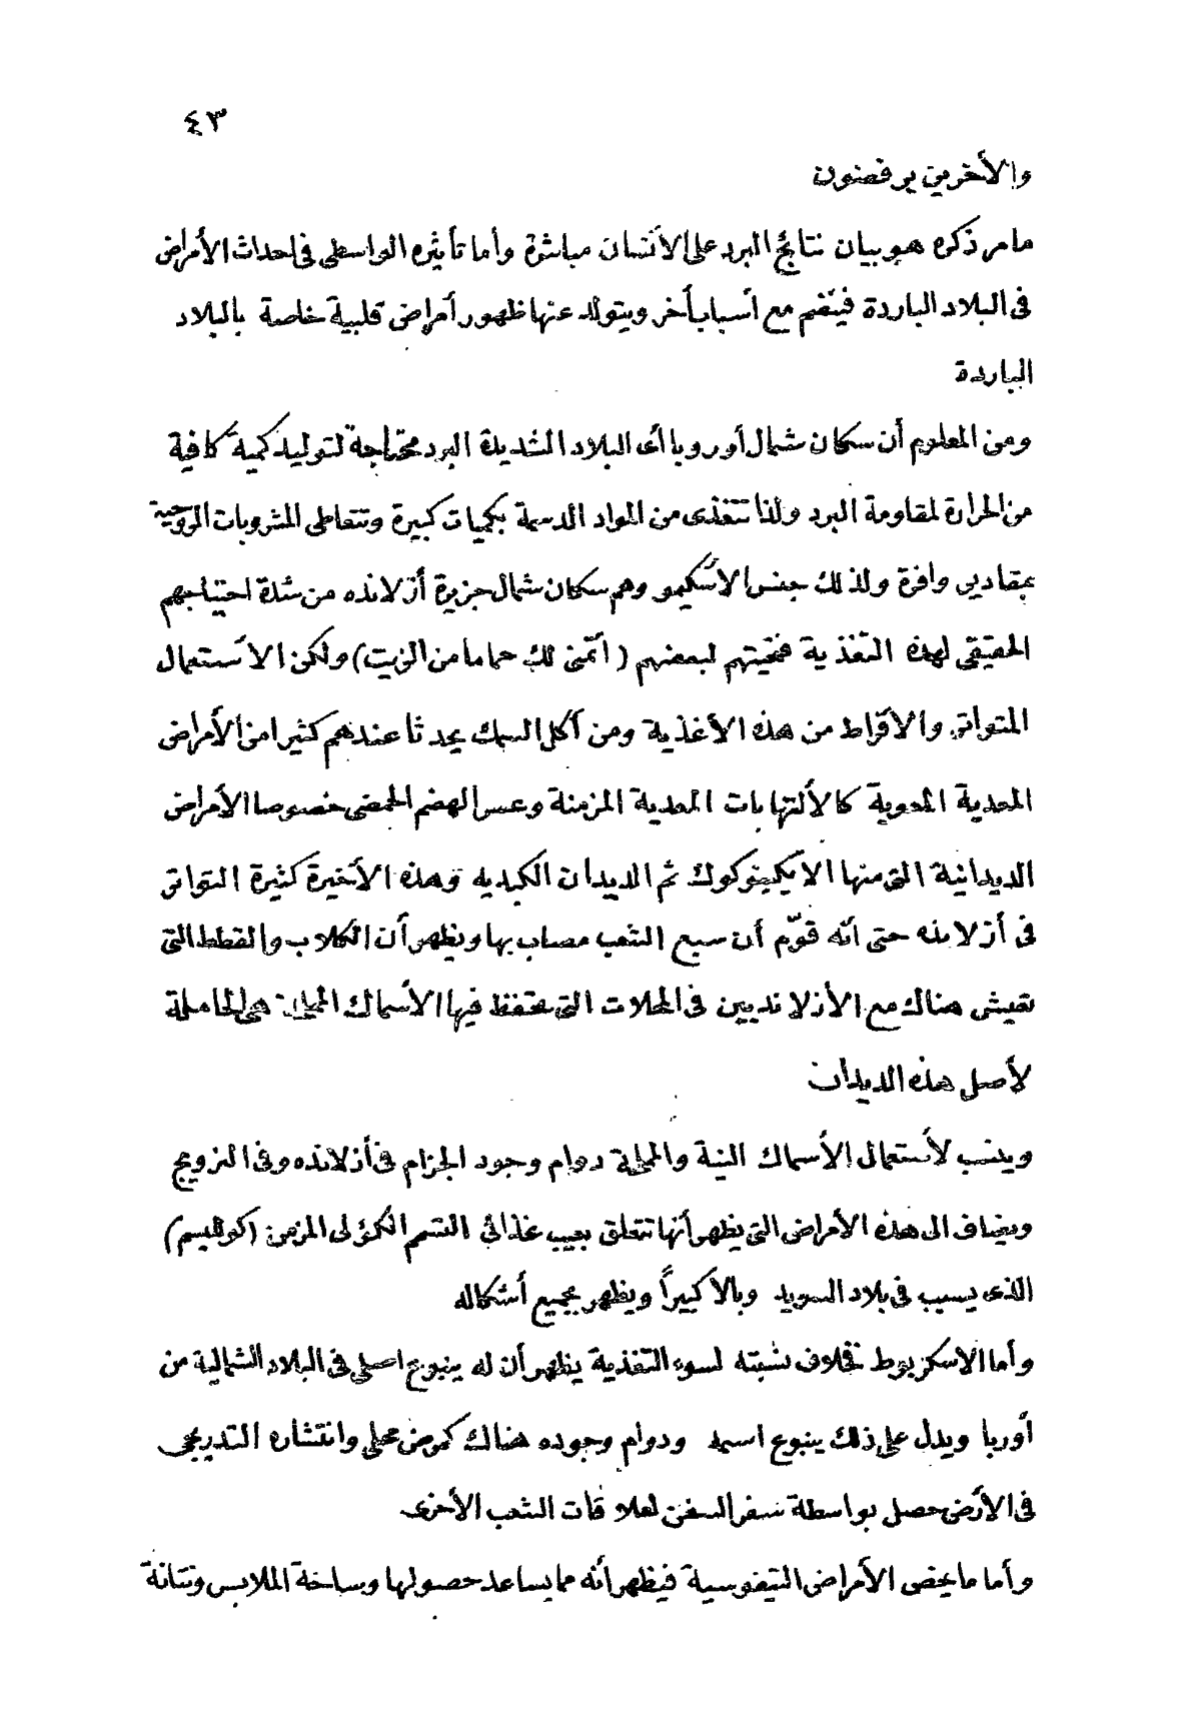 ٤٣
والأخرين يرفضون
مامر ذكره هو بيان نتائج البرد على الأنسان مباشرة وأما تأثيره الواسطى فى احداث الأمراض
فى البلاد الباردة فينضم مع أسباب أخر ويتولد عنها ظهور أمراض قلبية خاصة بالبلاد
الباردة
ومن المعلوم أن سكان شمال أوروبا أى البلاد الشديدة البرد محتاجة لتوليد كمية كافية
من الحرارة لمقاومة البرد ولذا تتغذى من المواد الدسمة بكميات كبيرة وتتعاطى المشروبات الروحية
بمقادير وافرة ولذلك جنس الأسكيمو وهم سكان شمال جزيرة أزلانده من شدة احتياجهم
الحقيقى لهذه التغذية فتحيتهم لبعضهم (أتمنى لك حماما من الزيت) ولكن الأستعمال
المتواتر والأفراط من هذه الأغذية ومن أكل السمك يحدثا عندهم كثيرا من الأمراض
المعدية المعوية كالألتهابات المعدية المزمنة وعسر الهضم الحمضى خصوصا الأمراض
الديدانية التى منها الأيكينوكوك ثم الديدان الكبديه وهذه الأخيرة كثيرة التواتر
فى أزلانده حتى أنه قوّم أن سبع الشعب مصاب بها ويظهر أن الكلاب والقطط التى
تعيش هناك مع الأزلانديين فى المحلات التى تحتفظ فيها الأسماك المملحة هى الحاملة
لأصل هذه الديدان
وينسب لأستعمال الأسماك النية والمملحة دوام وجود الجزام فى أزلانده وفى النرويج
ويضاف الى هذه الأمراض التى يظهر أنها تتعلق بعيب غذائى التسمم الكؤلى المزمن (كؤليسم)
الذى يسبب فى بلاد السويد وبالا كبيراً ويظهر بجميع أشكاله
وأما الاسكربوط فخلاف نسبته لسوء التغذية يظهر أن له ينبوع اصلى فى البلاد الشمالية من
أوربا ويدل على ذلك ينبوع اسمه ودوام وجوده هناك كمرض محلى وانتشاره التدريجى
فى الأرض حصل بواسطة سفر السفن لعلاقات الشعب الأخرى
وأما ما يخص الأمراض التيفوسية فيظهر أنه مما يساعد حصولها وساخة الملابس ونتانة